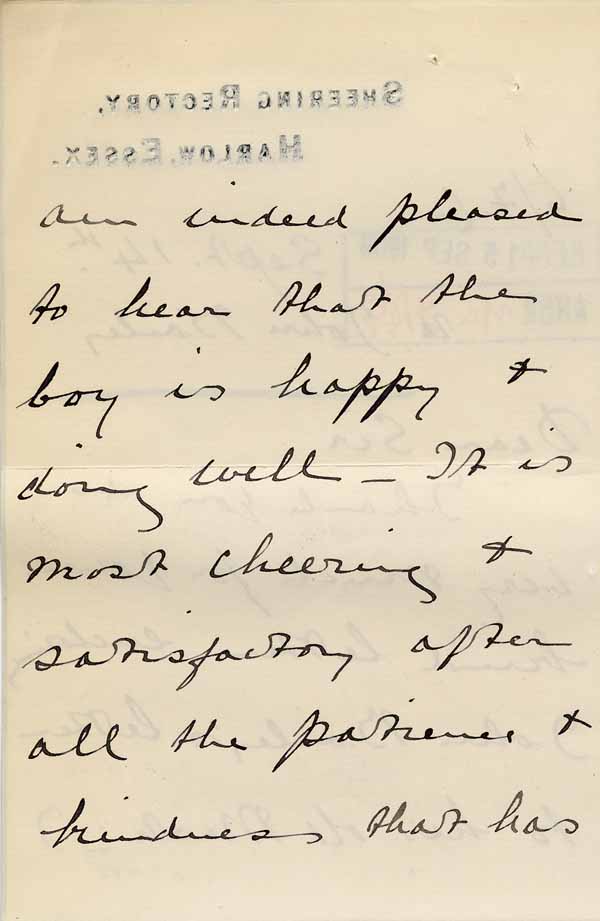 SHEERING RECTORY,
HARLOW, ESSEX.
am indeed pleased
to hear that the
boy is happy &
doing well – It is
most cheering &
satisfactory after
all the patience &
kindness that has